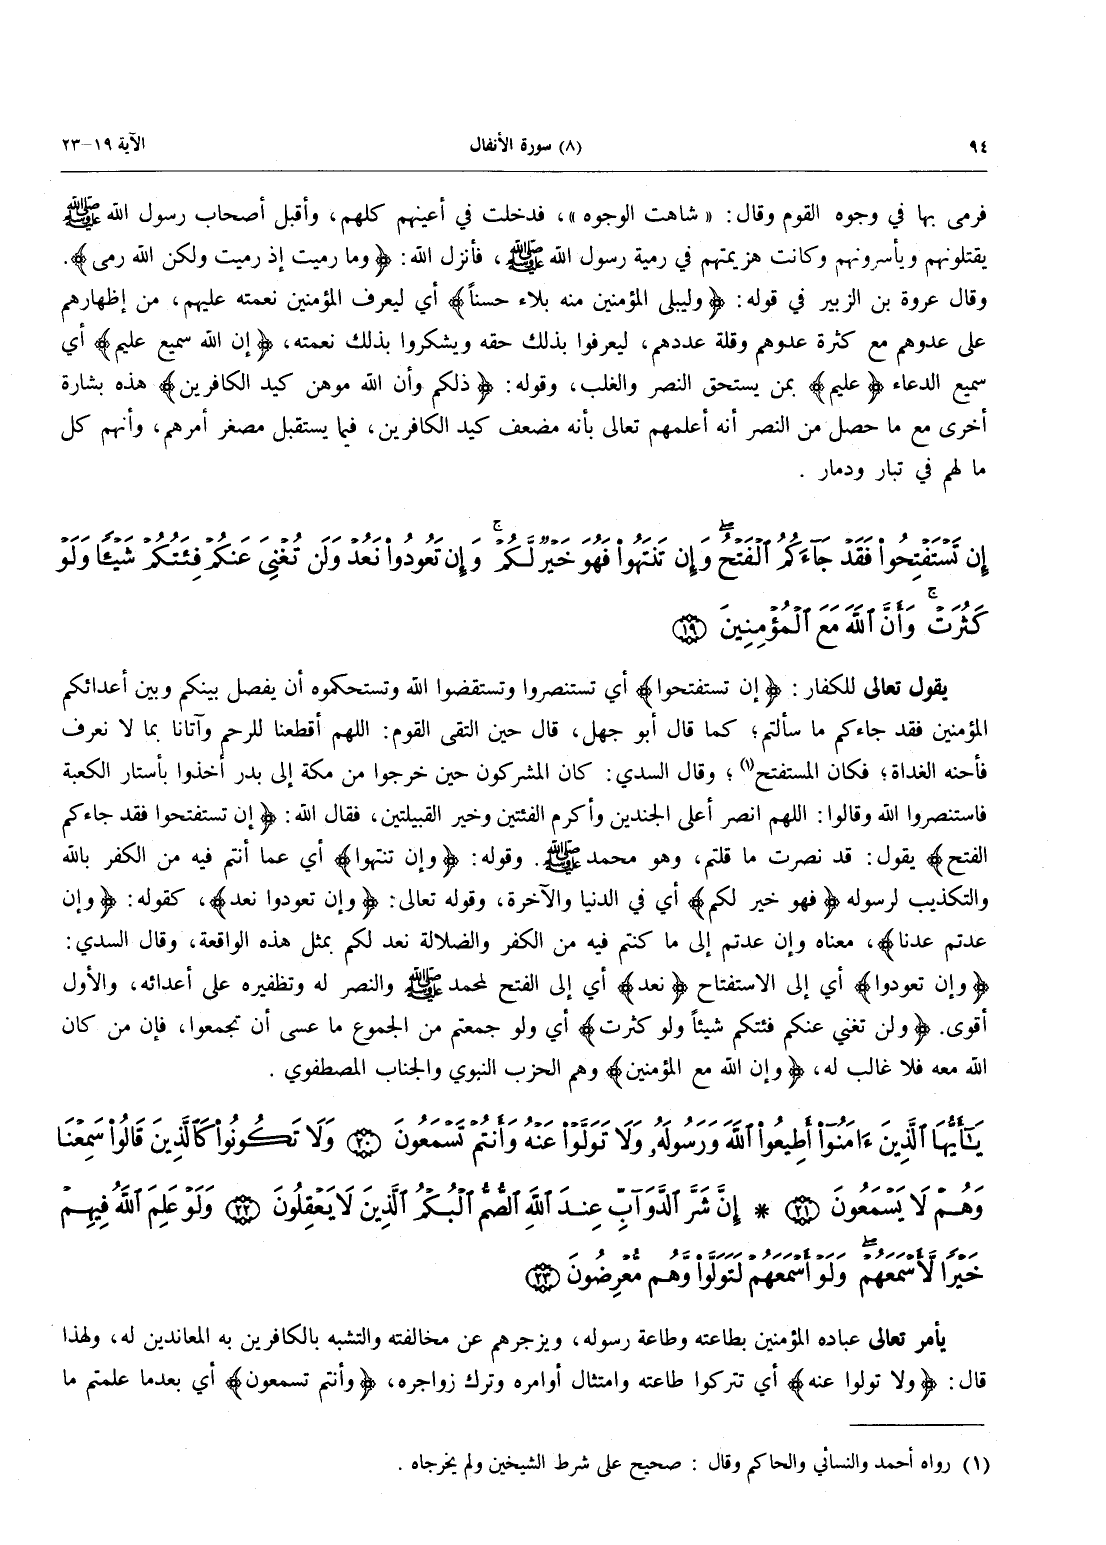 ٩٤ (٨) سورة الأنفال الآية ١٩-٢٣
فرمى بها في وجوه القوم وقال: «شاهت الوجوه»، فدخلت في أعينهم كلهم، وأقبل أصحاب رسول الله ﷺ
يقتلونهم ويأسرونهم وكانت هزيمتهم في رمية رسول الله ﷺ، فأنزل الله: ﴿وما رميت إذ رميت ولكن الله رمى﴾.
وقال عروة بن الزبير في قوله: ﴿وليبلى المؤمنين منه بلاء حسناً﴾ أي ليعرف المؤمنين نعمته عليهم، من إظهارهم
على عدوهم مع كثرة عدوهم وقلة عددهم، ليعرفوا بذلك حقه ويشكروا بذلك نعمته، ﴿إن الله سميع عليم﴾ أي
سميع الدعاء ﴿عليم﴾ بمن يستحق النصر والغلب، وقوله: ﴿ذلكم وأن الله موهن كيد الكافرين﴾ هذه بشارة
أخرى مع ما حصل من النصر أنه أعلمهم تعالى بأنه مضعف كيد الكافرين، فيما يستقبل مصغر أمرهم، وأنهم كل
ما لهم في تبار ودمار .
إِن تَسْتَفْتِحُوا۟ فَقَدْ جَآءَكُمُ ٱلْفَتْحُ ۖ وَإِن تَنتَهُوا۟ فَهُوَ خَيْرٌ لَّكُمْ ۚ وَإِن تَعُودُوا۟ نَعُدْ وَلَن تُغْنِىَ عَنكُمْ فِئَتُكُمْ شَيْـًٔا وَلَوْ
كَثُرَتْ ۚ وَأَنَّ ٱللَّهَ مَعَ ٱلْمُؤْمِنِينَ ﴿١٩﴾
يقول تعالى للكفار: ﴿إن تستفتحوا﴾ أي تستنصروا وتستقضوا الله وتستحكموه أن يفصل بينكم وبين أعدائكم
المؤمنين فقد جاءكم ما سألتم؛ كما قال أبو جهل، قال حين التقى القوم: اللهم أقطعنا للرحم وآتانا بما لا نعرف
فأحنه الغداة؛ فكان المستفتح(١)؛ وقال السدي: كان المشركون حين خرجوا من مكة إلى بدر أخذوا بأستار الكعبة
فاستنصروا الله وقالوا: اللهم انصر أعلى الجندين وأكرم الفئتين وخير القبيلتين، فقال الله: ﴿إن تستفتحوا فقد جاءكم
الفتح﴾ يقول: قد نصرت ما قلتم، وهو محمد ﷺ. وقوله: ﴿وإن تنتهوا﴾ أي عما أنتم فيه من الكفر بالله
والتكذيب لرسوله ﴿فهو خير لكم﴾ أي في الدنيا والآخرة، وقوله تعالى: ﴿وإن تعودوا نعد﴾، كقوله: ﴿وإن
عدتم عدنا﴾، معناه وإن عدتم إلى ما كنتم فيه من الكفر والضلالة نعد لكم بمثل هذه الواقعة، وقال السدي:
﴿وإن تعودوا﴾ أي إلى الاستفتاح ﴿نعد﴾ أي إلى الفتح لمحمد ﷺ والنصر له وتظفيره على أعدائه، والأول
أقوى. ﴿ولن تغني عنكم فئتكم شيئاً ولو كثرت﴾ أي ولو جمعتم من الجموع ما عسى أن تجمعوا، فإن من كان
الله معه فلا غالب له، ﴿وإن الله مع المؤمنين﴾ وهم الحزب النبوي والجناب المصطفوي .
يَـٰٓأَيُّهَا ٱلَّذِينَ ءَامَنُوٓا۟ أَطِيعُوا۟ ٱللَّهَ وَرَسُولَهُۥ وَلَا تَوَلَّوْا۟ عَنْهُ وَأَنتُمْ تَسْمَعُونَ ﴿٢٠﴾ وَلَا تَكُونُوا۟ كَٱلَّذِينَ قَالُوا۟ سَمِعْنَا
وَهُمْ لَا يَسْمَعُونَ ﴿٢١﴾ * إِنَّ شَرَّ ٱلدَّوَآبِّ عِندَ ٱللَّهِ ٱلصُّمُّ ٱلْبُكْمُ ٱلَّذِينَ لَا يَعْقِلُونَ ﴿٢٢﴾ وَلَوْ عَلِمَ ٱللَّهُ فِيهِمْ
خَيْرًا لَّأَسْمَعَهُمْ ۖ وَلَوْ أَسْمَعَهُمْ لَتَوَلَّوا۟ وَّهُم مُّعْرِضُونَ ﴿٢٣﴾
يأمر تعالى عباده المؤمنين بطاعته وطاعة رسوله، ويزجرهم عن مخالفته والتشبه بالكافرين به المعاندين له، ولهذا
قال: ﴿ولا تولوا عنه﴾ أي تتركوا طاعته وامتثال أوامره وترك زواجره، ﴿وأنتم تسمعون﴾ أي بعدما علمتم ما
(١) رواه أحمد والنسائي والحاكم وقال : صحيح على شرط الشيخين ولم يخرجاه .